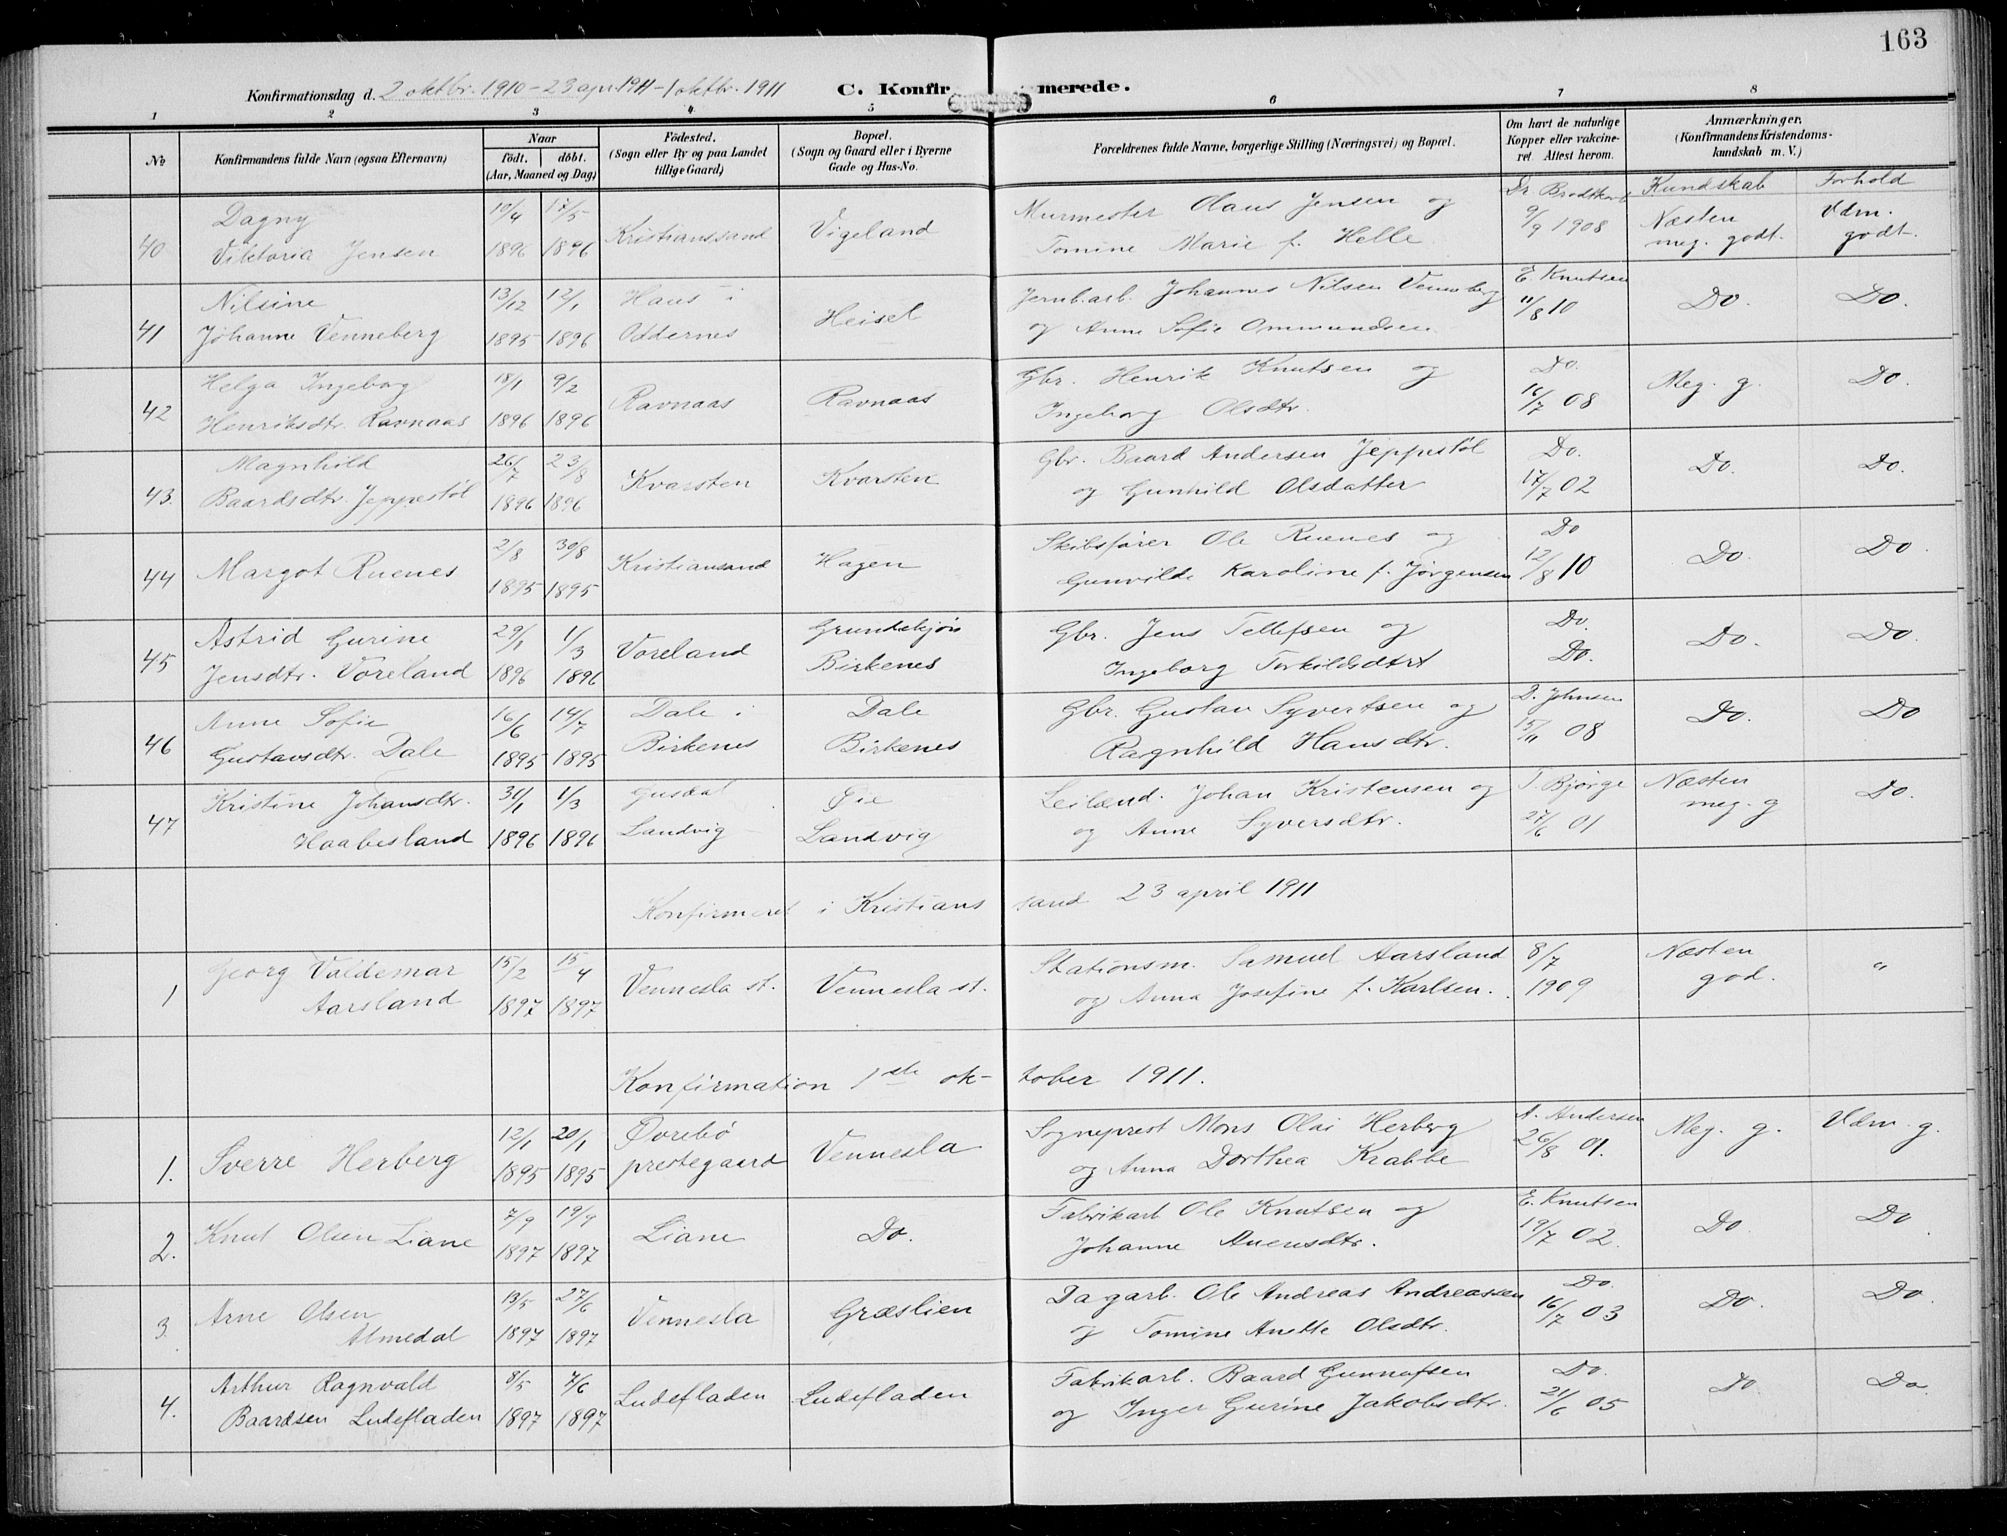 163
Konfirmationsdag d. 2 oktbr. 1910 - 23 apr. 1911 - 1 oktbr. 1911 C. Konfirmerede.
1 2 3 4 5 6 7 8
No Konfirmandens fulde Navn (ogsaa Efternavn) Naar födt. döbt. (Aar, Maaned og Dag) Födested. (Sogn eller By og paa Landet tillige Gaard) Bopæl. (Sogn og Gaard eller i Byerne Gade og Hus-No. Forældrenes fulde Navne, borgerlige Stilling (Næringsvei) og Bopæl. Om havt de naturlige Kopper eller vakcineret Attest herom. Anmærkninger. (Konfirmandens Kristendomskundskab m.V.)
Kundskab Forhold
Dagny 10/4 17/5 Murmester Olaus Jensen og Dr Brodtkorb Næsten Udm.
40 Viktoria Jensen 1896 1896 Kristianssand Vigeland Tomine Marie f. Helle 9/9 1908 meg. godt. godt.
Nilsine 13/12 12/1 Haus i Jernb.arb. Johannes Nilsen Venneberg E. Knutsen
41 Johanne Venneberg 1895 1896 Oddernes Heisel og Anne Sofie Ommundsen 11/8 10 Do. Do.
Helga Ingeborg 18/1 9/2 Gbr. Henrik Knutsen og Do.
42 Henriksdtr. Ravnaas 1896 1896 Ravnaas Ravnaas Ingeborg Olsdtr. 16/7 08 Meg. g. Do.
Magnhild 26/7 23/8 Gbr. Baard Andersen Jeppestøl Do.
43. Baardsdtr. Jeppestøl 1896 1896 Kvarsten Kvarsten og Gunhild Olsdatter 17/7 02 Do. Do.
2/8 30/8 Skibsfører Ole Ruenes og Do
44 Margot Ruenes 1895 1895 Kristianssand Hagen Gunvilde Karoline f. Jørgensen 12/8 10 Do. Do
Astrid Gurine 29/1 1/3 Grundekjøn Gbr. Jens Tellefsen og Do.
45 Jensdtr. Voreland 1896 1896 Voreland Birkenes Ingeborg Torkildsdtrt Do. Do. Do.
Anne Sofie 16/6 14/7 Dale i Dale Gbr. Gustav Syvertsen og D. Johnsen
46 Gustavsdtr. Dale 1895 1895 Birkenes Birkenes Ragnhild Hansdtr. 15/11 08 Do. Do
Kristine Johansdtr. 31/1 1/3 Øie Leilænd. Johan Kristensen og T. Bjørge Næsten
47 Haabesland 1896 1896 Landvig Landvig og Anne Syversdtr. 27/6 01 meg. g Do.
Konfirmeret i Kristianssand 23 april 1911
Georg Valdemar 15/2 15/4 Stationsm. Samuel Aarsland 8/7 Næsten
1 Aarsland 1897 1897 Vennesla st. Vennesla st. og Anna Josefine f. Karlsen. 1909 god. "
Konfirmation 1ste oktober 1911.
12/1 20/1 Øvrebø Sogneprest Mons Olai Herberg A. Andersen
1. Sverre Herberg 1895 1895 prestegaard Vennesla og Anna Dorthea Krabbe 26/8 01. Meg. g. Udm. g.
7/9 19/9 Fabrikarb Ole Knutsen og E. Knutsen
2. Knut Olsen Liane 1897 1897 Liane Do. Johanne Auensdtr. 19/7 02. Do Do
Arne Olsen 13/5 27/6 Dagarb. Ole Andreas Andreassen Do.
3. Almedal 1897 1897 Vennesla Græslien og Tomine Anette Olsdtr. 16/7 03 Do. Do
Arthur Ragnvald 8/5 7/6 Fabrikarb. Baard Gunnufsen Do.
4. Baardsen Ludefladen 1897 1897 Ludefladen Ludefladen og Inger Gurine Jakobsdtr. 21/6 05 Do. Do.